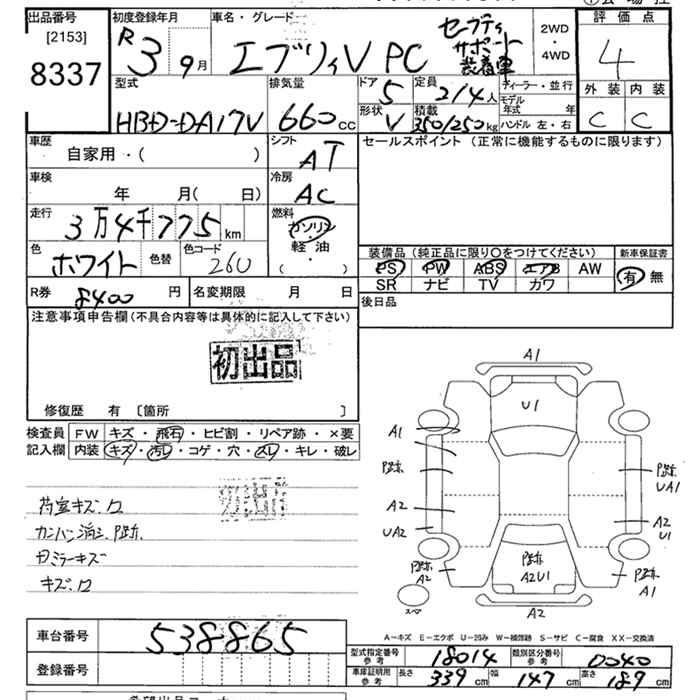 出品番号 初度登録年月 車名・グレード 評価点
[2153] R3 9月 エブリィV PC セーフティ サポート 装着車 2WD ・4WD 4
8337
型式 排気量 ドア 5 定員 2/4人 ディーラー・並行 外装 内装
HBD-DA17V 660cc 形状 V 積載 350/250kg モデル年式 年 C C
ハンドル 左・右
車歴 自家用・( ) シフト AT セールスポイント (正常に機能するものに限ります)
車検 年 月(日) 冷房 AC
走行 3万4千775km 燃料 ガソリン 軽油 ( ・ )
色 ホワイト 色替 色コード 26U 装備品(純正品に限り○をつけてください) 新車保証書
PS PW ABS エアB AW 有・無
SR ナビ TV カワ
R券 8400円 名変期限 月 日 後日品
注意事項申告欄(不具合内容等は具体的に記入して下さい)
初出品
修復歴 有 〔箇所 〕
検査員 FW キズ・飛石・ヒビ割・リペア跡・×要
記入欄 内装 キズ・汚レ・コゲ・穴・スレ・キレ・破レ
初出品
荷室キズ、ロ
カンバン消シ、P跡
ミラーキズ
キズ、ロ
A1
U1
A1
P跡
A2
UA2
P跡
A2
P跡
UA1
A2
U1
P跡
A1
P跡
A2U1
スペア
A2
A−キズ E−エクボ U−凹み W−補修跡 S−サビ C−腐食 XX−交換済
車台番号 538865
登録番号
型式指定番号 参考 18014 類別区分番号 参考 0040
車庫証明用 参考 長さ 339cm 幅 147cm 高さ 189cm